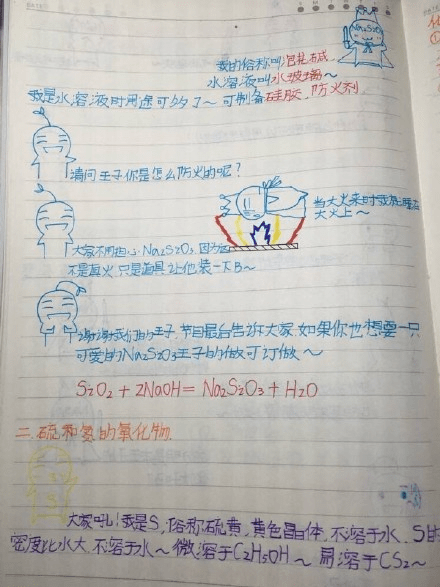 Na₂S₂O₃
我的俗称叫 碱,
水溶液叫水玻璃~
我是水溶液时用途可多了~可制备硅胶,防火剂
请问王子你是怎么防火的呢?
当大火来时我就睡在
大火上~
大家不用担心Na₂S₂O₃ 因为这
不是真火只是道具让他装一下B~
谢谢我们的王子,节目最后告诉大家,如果你也想要一只
可爱的Na₂S₂O₃王子的做可订做~
S₂O₂+2NaOH=Na₂S₂O₃+H₂O
二.硫和氮的氧化物.
S
大家好!我是S,俗称硫黄,黄色晶体,不溶于水,S的
密度比水大,不溶于水~微溶于C₂H₅OH~易溶于CS₂~